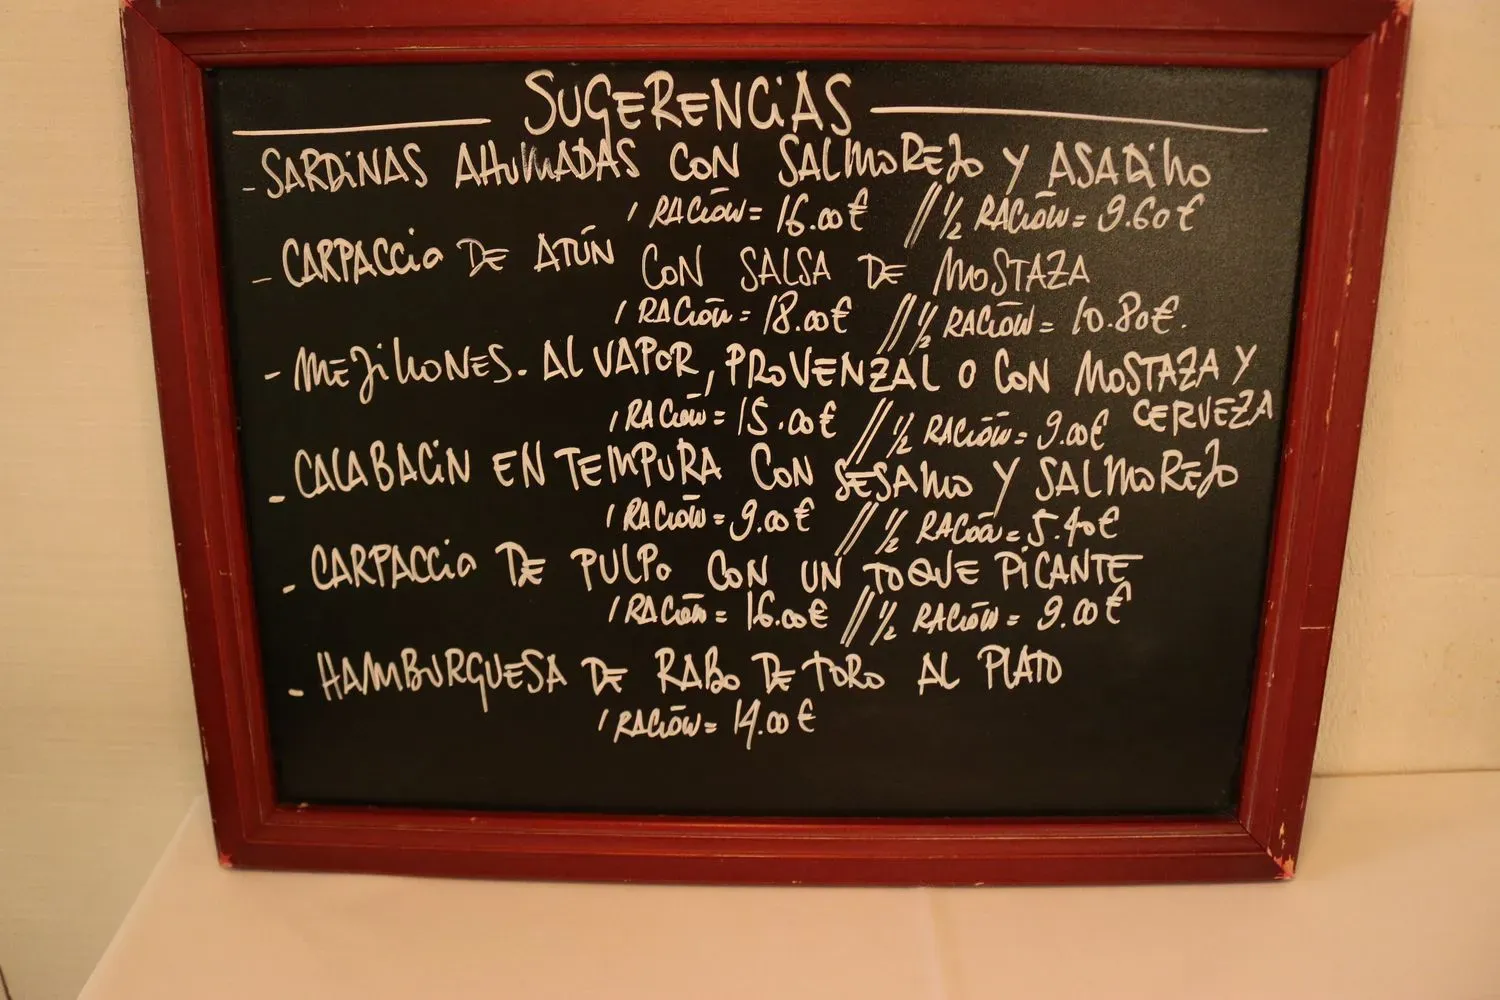 SUGERENCIAS
- SARDINAS AHUMADAS CON SALMOREJO Y ASADILLO
1 RACIÓN = 16.00€ // 1/2 RACIÓN = 9.60€
- CARPACCIO DE ATÚN CON SALSA DE MOSTAZA
1 RACIÓN = 18.00€ // 1/2 RACIÓN = 10.80€.
- MEJILLONES. AL VAPOR, PROVENZAL O CON MOSTAZA Y
CERVEZA
1 RACIÓN = 15.00€ // 1/2 RACIÓN = 9.00€
- CALABACIN EN TEMPURA CON SESAMO Y SALMOREJO
1 RACIÓN = 9.00€ // 1/2 RACIÓN = 5.40€
- CARPACCIO DE PULPO CON UN TOQUE PICANTE
1 RACIÓN = 16.00€ // 1/2 RACIÓN = 9.00€
- HAMBURGUESA DE RABO DE TORO AL PLATO
1 RACIÓN = 14.00€